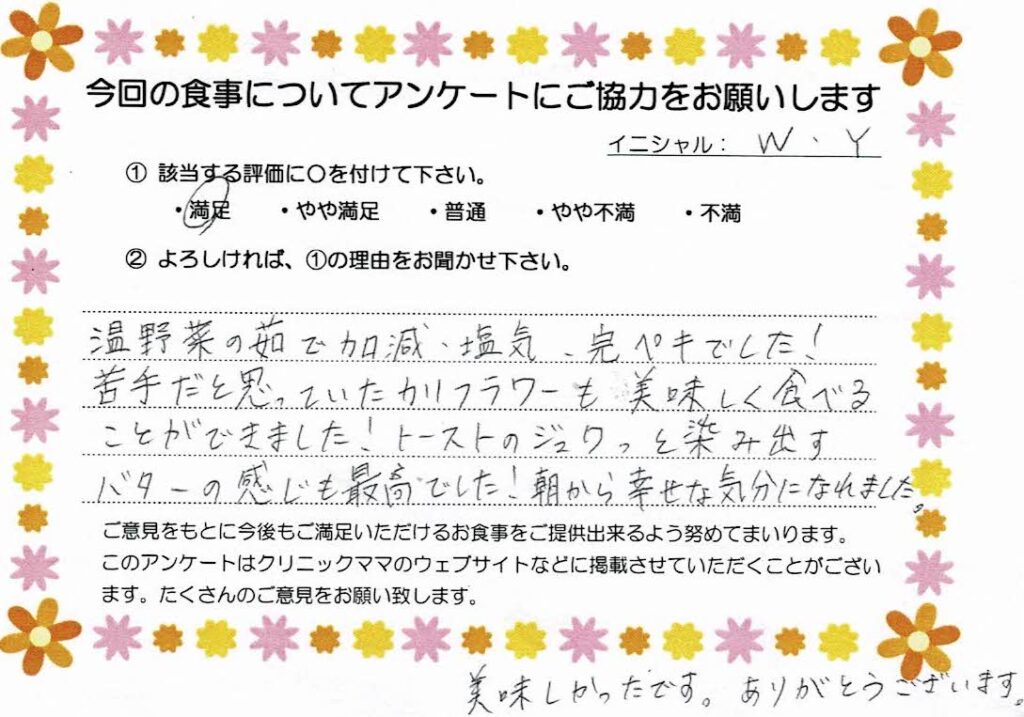 今回の食事についてアンケートにご協力をお願いします
イニシャル： W、Y
① 該当する評価に〇を付けて下さい。
・満足 ・やや満足 ・普通 ・やや不満 ・不満
② よろしければ、①の理由をお聞かせ下さい。
温野菜の茹で加減、塩気、完ペキでした！
苦手だと思っていたカリフラワーも美味しく食べる
ことができました！トーストのジュワっと染み出す
バターの感じも最高でした！朝から幸せな気分になれました。
ご意見をもとに今後もご満足いただけるお食事をご提供出来るよう努めてまいります。
このアンケートはクリニックママのウェブサイトなどに掲載させていただくことがござい
ます。たくさんのご意見をお願い致します。
美味しかったです。ありがとうございます。